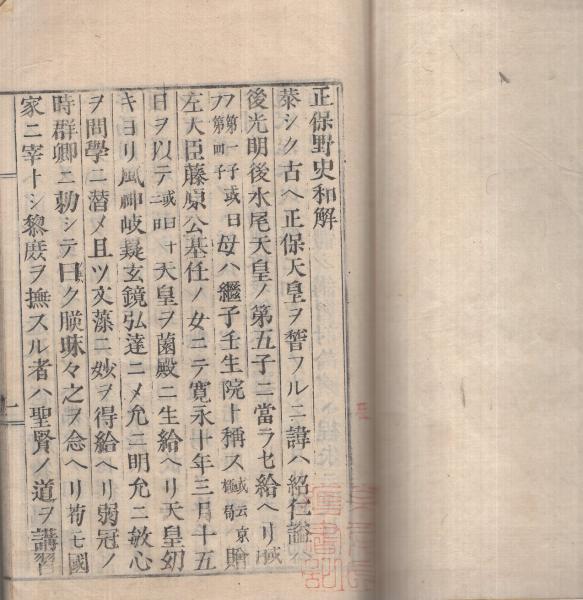 正保野史和解
恭シク古ヘ正保天皇ヲ誓フルニ諱ハ紹仁謚ハ
後光明後水尾天皇ノ第五子ニ當ラセ給ヘリ或
ハ第一子或曰第四子母ハ繼子壬生院ト稱ス或云京極局贈
左大臣藤原公基任ノ女ニテ寛永十年三月十五
日ヲ以テ或曰二日天皇ヲ菌殿ニ生給ヘリ天皇幼
キヨリ風神岐嶷玄鏡弘達ニメ允ニ明允ニ敏心
ヲ問學ニ潜メ且ツ文藻ニ妙ヲ得給ヘリ弱冠ノ
時群卿ニ勅シテ曰ク朕昧々之ヲ念ヘリ苟モ國
家ニ宰トシ黎庶ヲ撫スル者ハ聖賢ノ道ヲ講習